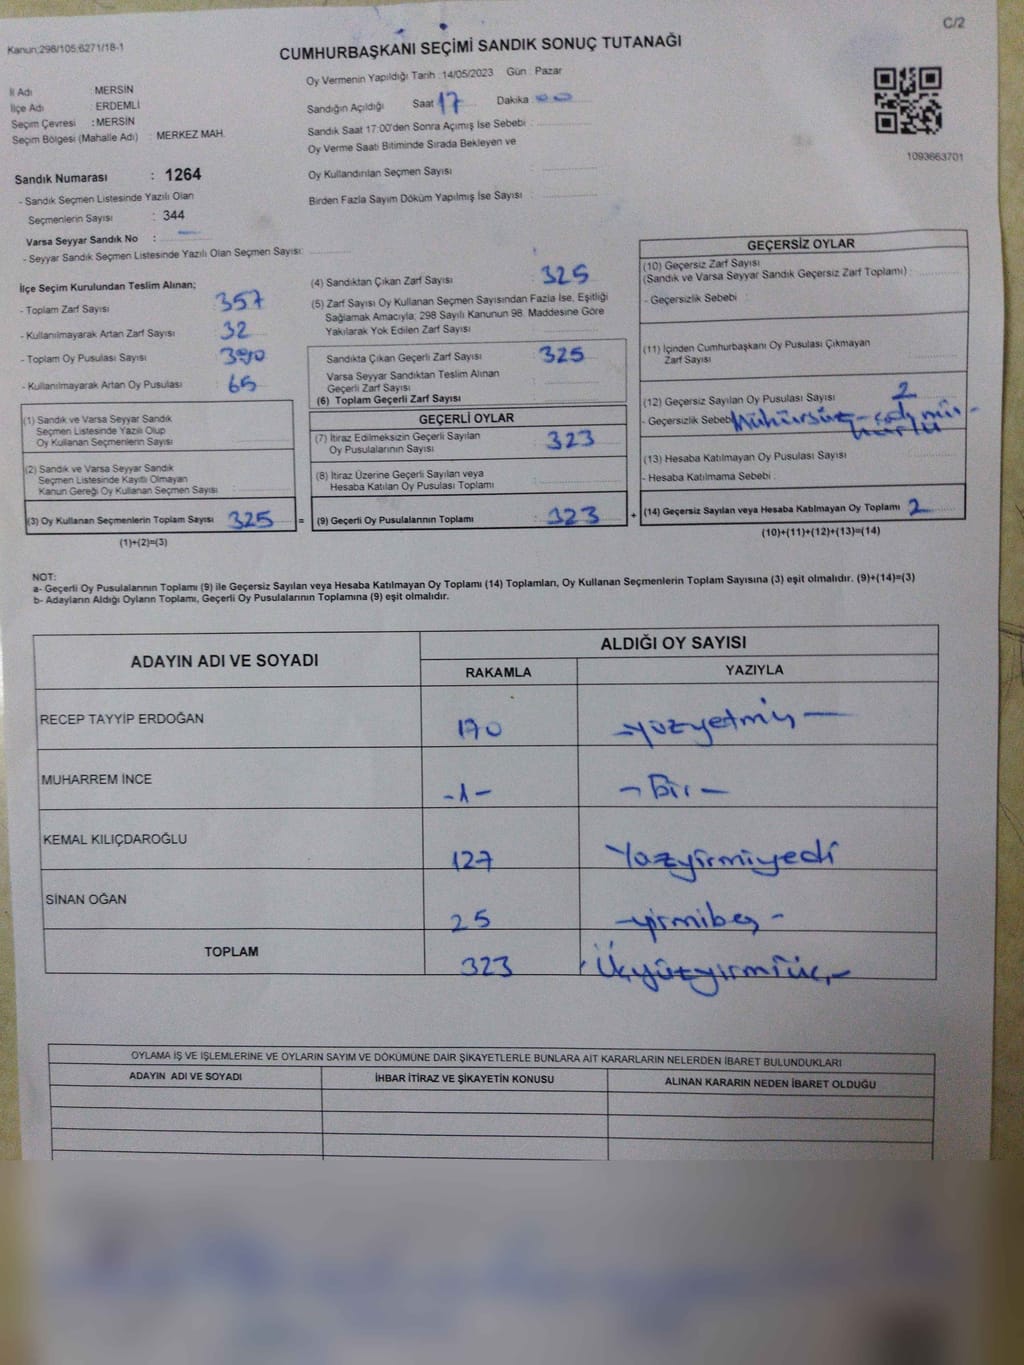 C/2
Kanun;298/105;6271/18-1
CUMHURBAŞKANI SEÇİMİ SANDIK SONUÇ TUTANAĞI
Oy Vermenin Yapıldığı Tarih :14/05/2023 Gün : Pazar
İl Adı : MERSİN
İlçe Adı : ERDEMLİ
Seçim Çevresi : MERSİN
Seçim Bölgesi (Mahalle Adı) : MERKEZ MAH.
Sandığın Açıldığı Saat 17 Dakika 00
Sandık Saat 17:00'den Sonra Açımış İse Sebebi :
Oy Verme Saati Bitiminde Sırada Bekleyen ve
Oy Kullandırılan Seçmen Sayısı :
Birden Fazla Sayım Döküm Yapılmış İse Sayısı :
1093663701
Sandık Numarası : 1264
- Sandık Seçmen Listesinde Yazılı Olan
Seçmenlerin Sayısı : 344
Varsa Seyyar Sandık No : -
- Seyyar Sandık Seçmen Listesinde Yazılı Olan Seçmen Sayısı:
İlçe Seçim Kurulundan Teslim Alınan;
- Toplam Zarf Sayısı : 357
- Kullanılmayarak Artan Zarf Sayısı : 32
- Toplam Oy Pusulası Sayısı : 390
- Kullanılmayarak Artan Oy Pusulası : 65
(1) Sandık ve Varsa Seyyar Sandık
Seçmen Listesinde Yazılı Olup
Oy Kullanan Seçmenlerin Sayısı :
(2) Sandık ve Varsa Seyyar Sandık
Seçmen Listesinde Kayıtlı Olmayan
Kanun Gereği Oy Kullanan Seçmen Sayısı :
(3) Oy Kullanan Seçmenlerin Toplam Sayısı : 325
(1)+(2)=(3)
=
(4) Sandıktan Çıkan Zarf Sayısı : 325
(5) Zarf Sayısı Oy Kullanan Seçmen Sayısından Fazla İse, Eşitliği
Sağlamak Amacıyla; 298 Sayılı Kanunun 98. Maddesine Göre
Yakılarak Yok Edilen Zarf Sayısı :
Sandıkta Çıkan Geçerli Zarf Sayısı : 325
Varsa Seyyar Sandıktan Teslim Alınan
Geçerli Zarf Sayısı :
(6) Toplam Geçerli Zarf Sayısı :
GEÇERLİ OYLAR
(7) İtiraz Edilmeksizin Geçerli Sayılan
Oy Pusulalarının Sayısı : 323
(8) İtiraz Üzerine Geçerli Sayılan veya
Hesaba Katılan Oy Pusulası Toplamı :
(9) Geçerli Oy Pusulalarının Toplamı : 323
+
GEÇERSİZ OYLAR
(10) Geçersiz Zarf Sayısı
(Sandık ve Varsa Seyyar Sandık Geçersiz Zarf Toplamı) :
- Geçersizlik Sebebi :
(11) İçinden Cumhurbaşkanı Oy Pusulası Çıkmayan
Zarf Sayısı :
(12) Geçersiz Sayılan Oy Pusulası Sayısı : 2
- Geçersizlik Sebebi : mühürsüz -
(13) Hesaba Katılmayan Oy Pusulası Sayısı :
- Hesaba Katılmama Sebebi :
(14) Geçersiz Sayılan veya Hesaba Katılmayan Oy Toplamı : 2
(10)+(11)+(12)+(13)=(14)
NOT:
a- Geçerli Oy Pusulalarının Toplamı (9) ile Geçersiz Sayılan veya Hesaba Katılmayan Oy Toplamı (14) Toplamları, Oy Kullanan Seçmenlerin Toplam Sayısına (3) eşit olmalıdır. (9)+(14)=(3)
b- Adayların Aldığı Oyların Toplamı, Geçerli Oy Pusulalarının Toplamına (9) eşit olmalıdır.
ADAYIN ADI VE SOYADI
ALDIĞI OY SAYISI
RAKAMLA YAZIYLA
RECEP TAYYİP ERDOĞAN 170 - yüzyetmiş -
MUHARREM İNCE -1- - Bir -
KEMAL KILIÇDAROĞLU 127 Yüzyirmiyedi
SİNAN OĞAN 25 - yirmibeş -
TOPLAM 323 Üçyüzyirmiüç -
OYLAMA İŞ VE İŞLEMLERİNE VE OYLARIN SAYIM VE DÖKÜMÜNE DAİR ŞİKAYETLERLE BUNLARA AİT KARARLARIN NELERDEN İBARET BULUNDUKLARI
ADAYIN ADI VE SOYADI İHBAR İTİRAZ VE ŞİKAYETİN KONUSU ALINAN KARARIN NEDEN İBARET OLDUĞU